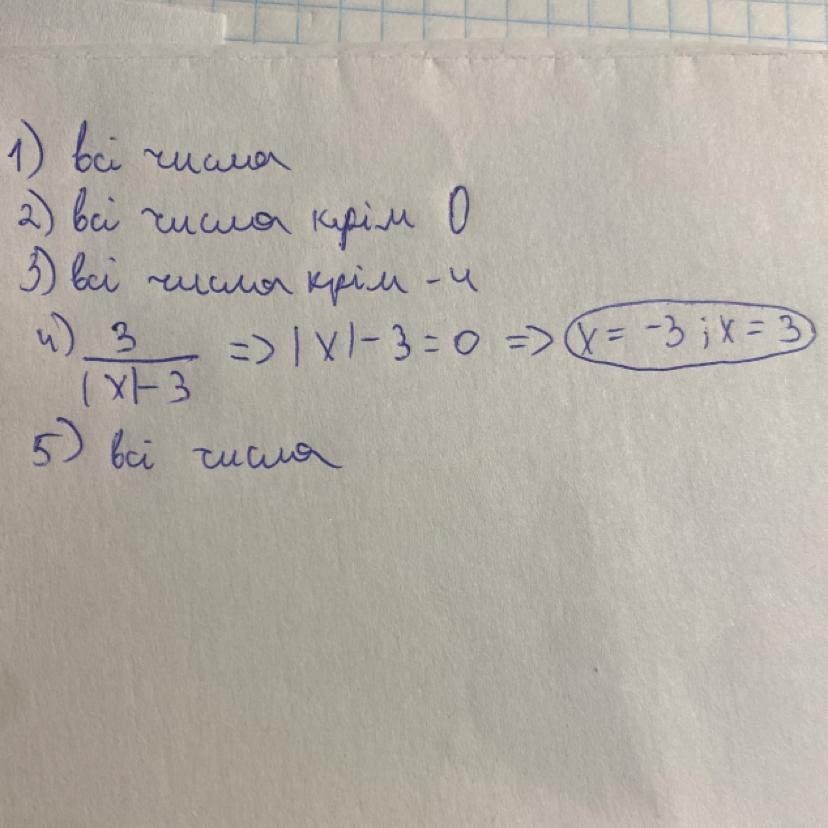 1) всі числа
2) всі числа крім 0
3) всі числа крім -4
4) 3/(|x|-3) => |x|-3=0 => x = -3 ; x = 3
5) всі числа